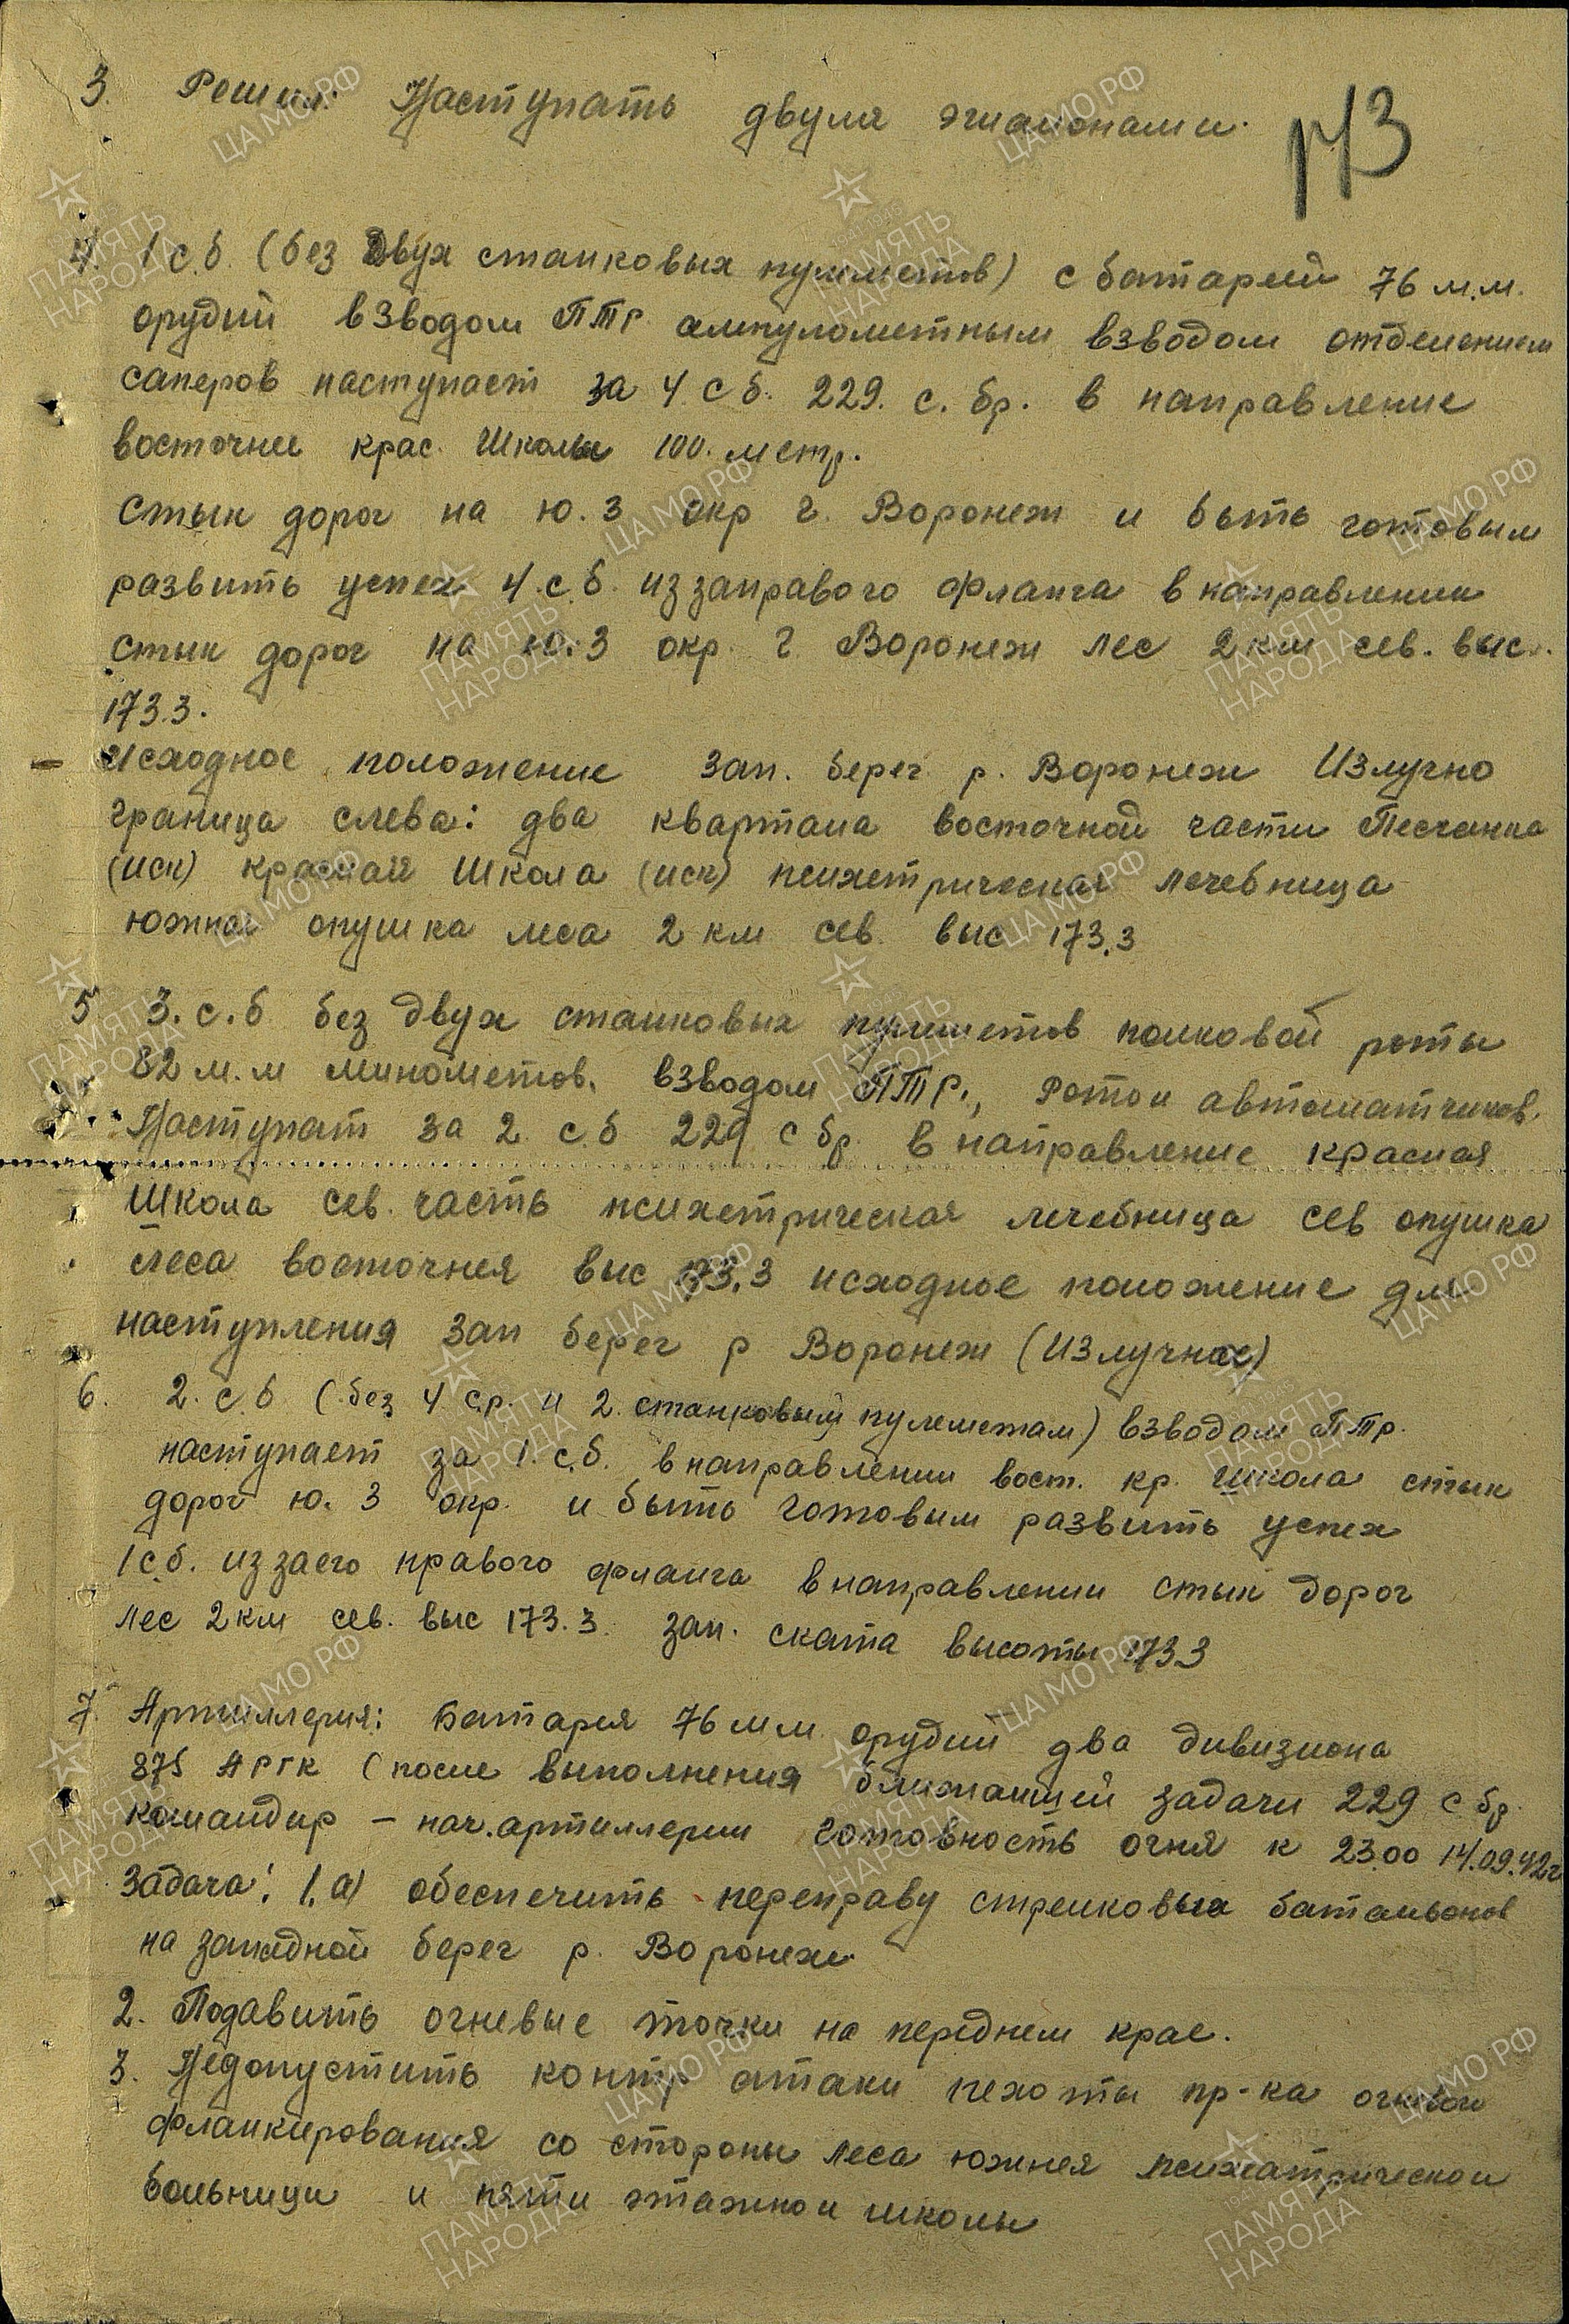 3. Решил: Наступать двумя эшалонами.
173
4. 1 с.б. (без двух станковых пулиметов) с батареей 76 м.м.
орудий взводом ПТР ампулометным взводом отделением
саперов наступает за 4 с б. 229. с. бр. в направление
восточнее крас. Школы 100. метр.
Стык дорог на ю.з окр г. Воронеж и быть готовым
развить успех 4.с.б. иззаправого фланга в направлении
стык дорог на ю.з окр. г Воронеж лес 2 км сев. выс.
173.3.
Исходное положение зап. берег р. Воронеж Излучно
граница слева: два квартала восточной части Песчанка
(иск) красная Школа (иск) психетрическая лечебница
южная опушка леса 2 км сев. выс 173.3
5 3.с.б без двух станковых пулиметов полковой роты
82 м.м минометов. взводом ПТР., Ротой автоматчиков.
Наступат за 2 с.б 229 с бр. в направление красная
Школа сев. часть психетрическая лечебница сев опушка
леса восточнея выс 173.3 исходное положение для
наступления зап берег р Воронеж (Излучна)
6. 2. с.б (без 4 с.р. и 2 станковым пулеметам) взводом ПТР.
наступает за 1. с.б. в направлении вост. кр. Школа стык
дорог ю. з окр. и быть готовым развить успех
1 с.б. иззаего правого фланга в направлении стык дорог
лес 2 км сев. выс 173.3. зап. ската высоты 173.3
7. Артиллерия: Батарея 76 мм орудий два дивизиона
875 АРГК (после выполнения ближайшей задачи 229 с бр.
командир – нач. артиллерии готовность огня к 23.00 14.09.42г
Задача: 1.а) обеспечить переправу стрелковых батальонов
на западной берег р. Воронеж
2. Подавить огневые точки на переднем крае.
3. Недопустить контр атаки пехоты пр-ка огневой
фланкирования со стороны леса южнея психиатрической
больници и пяти этажной школы
ЦАМО РФ
ПАМЯТЬ НАРОДА